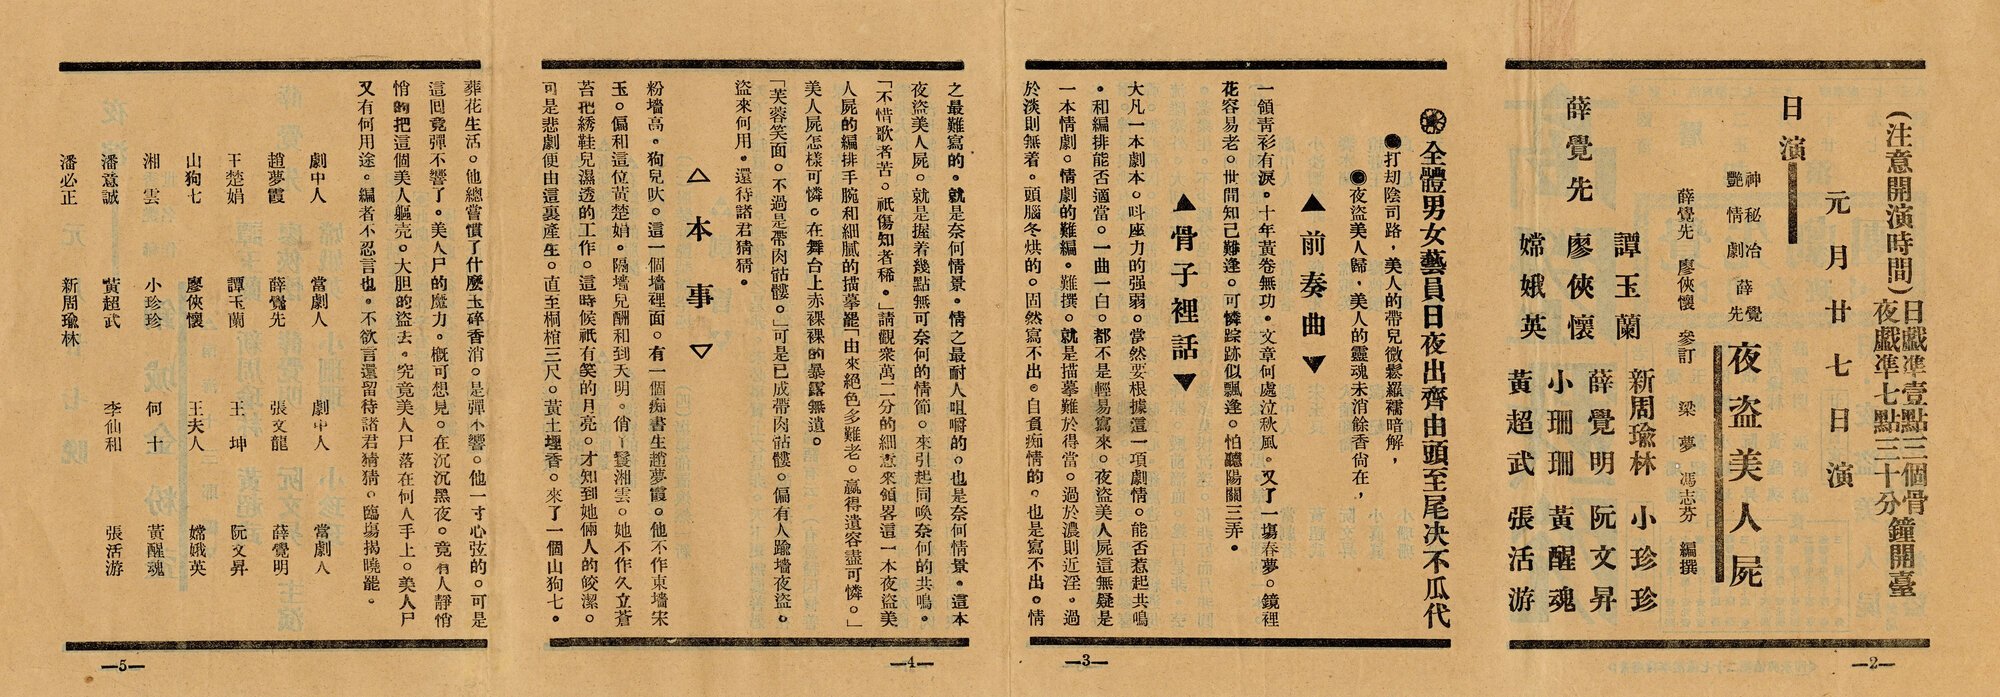 (注意開演時間)日戲準壹點三個骨鐘開臺
夜戲準七點三十分
元月廿七日演
日演
神秘冶艷情劇
薛覺先
夜盜美人屍
薛覺先 廖俠懷 參訂 梁夢 馮志芬 編撰
譚玉蘭 新周瑜林 小珍珍
薛覺先 廖俠懷 薛覺明 阮文昇
小珊珊 黃醒魂
嫦娥英 黃超武 張活游
—2—
全體男女藝員日夜出齊由頭至尾決不瓜代
●打刧陰司路,美人的帶兒微鬆羅襦暗解,
●夜盜美人歸,美人的靈魂未消餘香尙在,
▲前奏曲▼
一領靑彩有淚。十年黃卷無功。文章何處泣秋風。又了一塲春夢。鏡裡
花容易老。世間知己難逢。可憐踪跡似飄逢。怕聽陽關三弄。
▲骨子裡話▼
大凡一本劇本。呌座力的强弱。當然要根據這一項劇情。能否惹起共鳴
。和編排能否適當。一曲一白。都不是輕易寫來。夜盜美人屍這無疑是
一本情劇。情劇的難編。難撰。就是描摹難於得當。過於濃則近淫。過
於淡則無着。頭腦冬烘的。固然寫不出。自負痴情的。也是寫不出。情
—3—
之最難寫的。就是奈何情景。情之最耐人咀嚼的。也是奈何情景。這本
夜盜美人屍。就是握着幾點無可奈何的情節。來引起同喚奈何的共鳴。
「不惜歌者苦。祇傷知者稀。」請觀衆萬二分的細意來領畧這一本夜盜美
人屍的編排手腕和細膩的描摹罷「由來絕色多難老。贏得遺容盡可憐。」
美人屍怎樣可憐。在舞台上赤裸裸的暴露無遺。
「芙蓉笑面。不過是帶肉骷髏。」可是已成帶肉骷髏。偏有人踰墻夜盜。
盜來何用。還待諸君猜猜。
△本事▽
粉墻高。狗兒吠。這一個墻裡面。有一個痴書生趙夢霞。他不作東墻宋
玉。偏和這位黃楚娟。隔墻兒酬和到天明。俏丫鬟湘雲。她不作久立蒼
苔把綉鞋兒濕透的工作。這時候祇有笑的月亮。才知到她倆人的皎潔。
可是悲劇便由這裏產生。直至桐棺三尺。黃土埋香。來了一個山狗七。
—4—
葬花生活。他總嘗慣了什麼玉碎香消。是彈不響。他一寸心弦的。可是
這回竟彈不響了。美人尸的魔力。槪可想見。在沉沉黑夜。竟有人靜悄
悄的把這個美人軀壳。大胆的盜去。究竟美人尸落在何人手上。美人尸
又有何用途。編者不忍言也。不欲言還留待諸君猜猜。臨塲揭曉罷。
劇中人 當劇人 劇中人 當劇人
趙夢霞 薛覺先 張文龍 薛覺明
王楚娟 譚玉蘭 王坤 阮文昇
山狗七 廖俠懷 王夫人 嫦娥英
湘雲 小珍珍 何士 黃醒魂
潘意誠 黃超武 李仙和 張活游
潘必正 新周瑜林
—5—